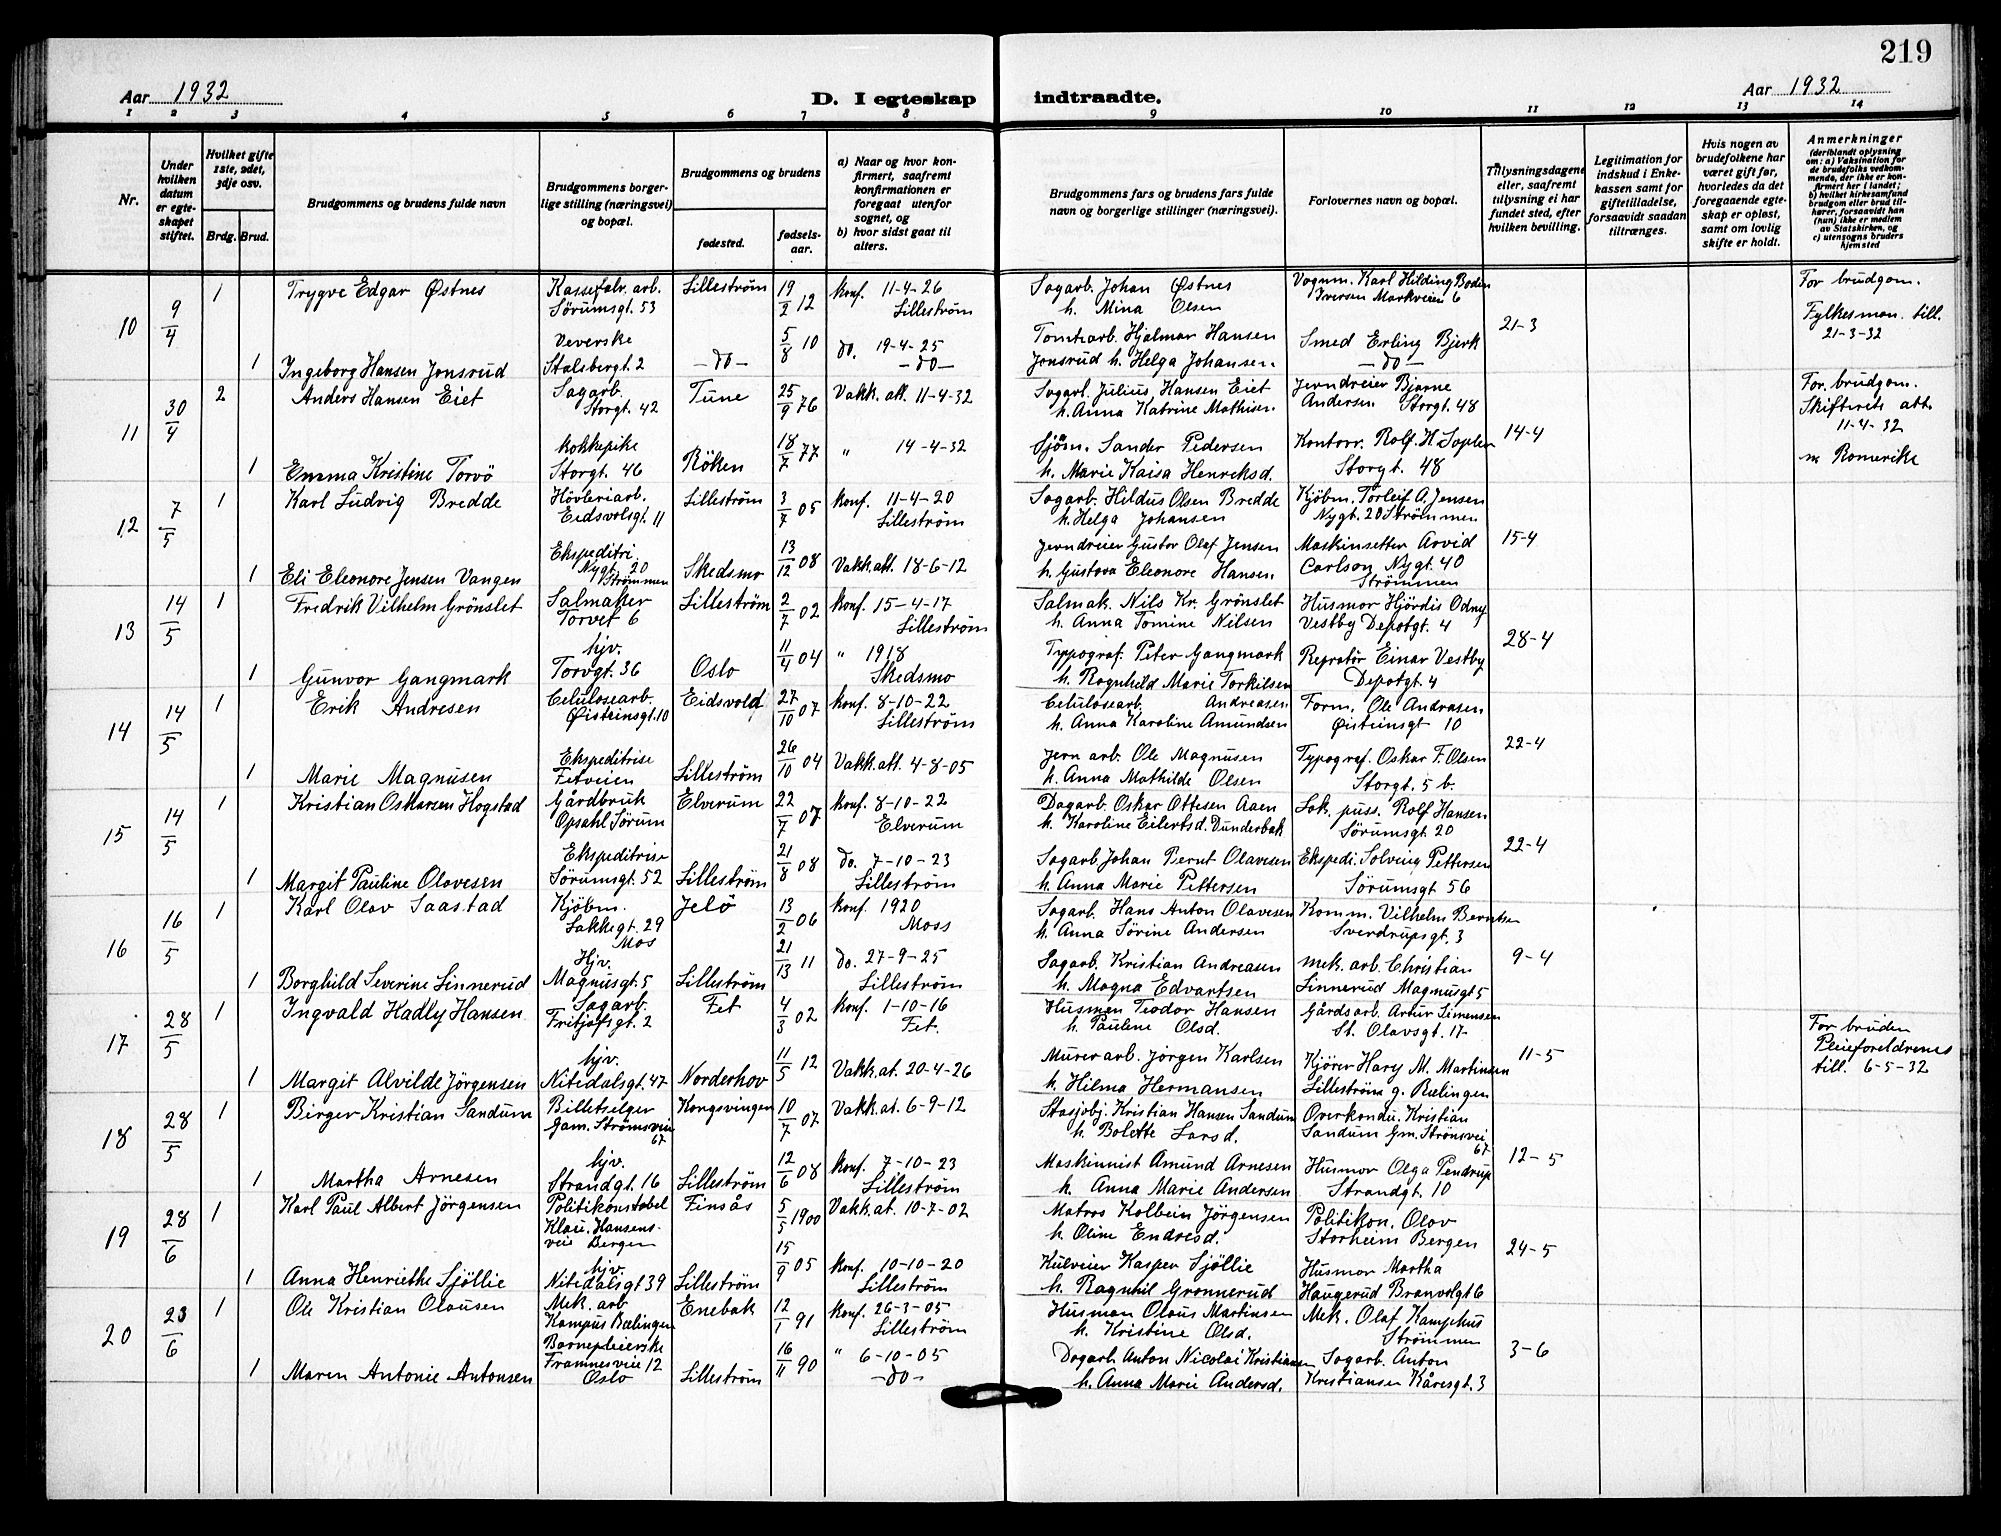 219
Aar 1932
D. I egteskap indtraadte.
Aar 1932
1 2 3 4 5 6 7 8 9 10 11 12 13 14
Nr.
Under hvilken datum er egteskapet stiftet.
Hvilket gifte 1ste, 2det, 3dje osv.
Brdg. Brud.
Brudgommens og brudens fulde navn
Brudgommens borgerlige stilling (næringsvei) og bopæl.
Brudgommens og brudens
fødested.
fødselsaar.
a) Naar og hvor konfirmert, saafremt konfirmationen er foregaat utenfor sognet, og
b) hvor sidst gaat til alters.
Brudgommens fars og brudens fars fulde navn og borgerlige stillinger (næringsvei).
Forlovernes navn og bopæl.
Tillysningsdagene eller, saafremt tillysning ei har fundet sted, efter hvilken bevilling.
Legitimation for indskud i Enkekassen samt for giftetilladelse, forsaavidt saadan tiltrænges.
Hvis nogen av brudefolkene har været gift før, hvorledes da det foregaaende egteskap er opløst, samt om lovlig skifte er holdt.
Anmerkninger
(deriblandt oplysning om: a) Vaksination for de brudefolks vedkommende, der ikke er konfirmert her i landet; b) hvilket kirkesamfund brudgom eller brud tilhører, forsaavidt han (hun) ikke er medlem av Statskirken, og c) utensogns bruders hjemsted
10 9/4 1 Trygve Edgar Østnes Kassefabr. arb. Sørumsgt. 53 Lilleström 19/2 12 konf. 11-4-26 Lilleström Sagarb. Johan Østnes h. Mina Olsen Vognm. Karl Hilding Boden Iversen Markveien 6 21-3 For brudgom. Fylkesman. till. 21-3-32
1 Ingeborg Hansen Jonsrud Veverske Stalsbergt. 2 -do- 5/8 10 do. 19-4-25 -do- Tomtarb. Hjalmar Hansen Jonsrud h. Helga Johansen Smed Erling Bjerk -do-
11 30/4 2 Anders Hansen Eiet Sagarb. Storgt. 42 Tune 25/9 76 Vakk. att. 11-4-32 Sagarb. Julius Hansen Eiet h. Anna Katrine Mathisen Jerndreier Bjarne Andersen Storgt. 48 14-4 For brudgom. Skifterets att. 11-4-32 n. Romerike
1 Emma Kristine Torvö kokkepike Storgt. 46 Röken 18/7 77 " 14-4-32 Sjöm. Sander Pedersen h. Marie Kaisa Henreksd. Kontorr. Rolf. H. Sopler Storgt. 48
12 7/5 1 Karl Ludvig Bredde Hövleriarb. Eidsvolsgt. 11 Lilleström 3/7 05 konf. 11-4-20 Lilleström Sagarb. Hildus Olsen Bredde h. Helga Johansen Kjöbm. Torleif A. Jensen Nygt. 20 Strömmen 15-4
1 Eli Eleonore Jensen Vangen Ekspeditri. Nygt. 20 Strömmen Skedsmo 13/12 08 Vakk. att. 18-6-12 Jerndreier Gustav Olaf Jensen h. Gustava Eleonore Hansen Maskinsetter Arvid Carlson Nygt. 40 Strömmen
13 14/5 1 Fredrik Vilhelm Grönslet Salmaker Torvet 6 Lilleström 2/7 02 konf. 15-4-17 Lilleström Salmak. Nils Kr. Grönslet h. Anna Tomine Nilsen Husmor Hjördis Odny Vestby Depotgt. 4 28-4
1 Gunvor Gangmark hjv. Torvgt. 36 Oslo 11/4 04 " 1918 Skedsmo Typograf. Peter Gangmark h. Ragnhild Marie Torkilsen Repratör Einar Vestby Depotgt. 4
14 14/5 1 Erik Andresen Celulosearb. Øisteinsgt. 10 Eidsvold 27/10 07 konf. 8-10-22 Lilleström Celulosearb. Andreasen h. Anna Karoline Amundsen Form. Ole Andrasen Øisteinsgt 10 22-4
1 Marie Magnusen Ekspeditrise Fetveien Lilleström 26/10 04 Vakk. att. 4-8-05 Jern arb. Ole Magnusen h. Anna Mathilde Olsen Typograf. Oskar F. Olsen Storgt. 5 b.
15 14/5 1 Kristian Oskarsen Hogstad Gårdbruk Opsahl Sörum Elverum 22/7 07 konf. 8-10-22 Elverum Dagarb. Oskar Ottesen Aaen h. Karoline Eilertsd. Dunderbak Lok. puss. Rolf Hansen Sörumsgt. 20 22-4
1 Margit Pauline Olavesen Ekspeditrise Sörumsgt. 52 Lilleström 21/8 08 do. 7-10-23 Lilleström Sagarb. Johan Bernt Olavesen h. Anna Marie Pettersen Ekspedi. Solveig Pettersen Sörumsgt 56
16 16/5 1 Karl Olav Saastad Kjöbm. Lakkegt. 29 Mos Jelö 13/2 06 konf. 1920 Moss Sagarb. Hans Anton Olavesen h. Anna Sörine Andersen Komm. Vilhelm Berntsen Sverdrupsgt. 3 9-4
1 Borghild Severine Linnerud Hjv. Magnusgt. 5 Lilleström 21/13 11 do. 27-9-25 Lilleström Sagarb. Kristian Andreasen h. Magna Edvartsen mek. arb. Christian Linnerud Magnusgt 5
17 28/5 1 Ingvald Hadly Hansen Sagarb Fritjofsgt. 2 Fet 4/3 02 konf. 1-10-16 Fet. Husman Teodor Hansen h. Pauline Olsd. Gårdsarb. Artur Simensen St. Olavsgt. 17 11-5 For bruden Pleieforeldrenes till. 6-5-32
1 Margit Alvilde Jörgensen hjv. Nitedalsgt. 47 Norderhov 11/5 12 Vakk. at. 20-4-26 Murerarb. Jörgen Karlsen h. Hilma Hermansen Kjörer Hary M. Martinsen Lilleström g. Rælingen
18 28/5 1 Birger Kristian Sandum Billetselger Gam. Strömsvei 67 Kongsvingen 10/7 07 Vakk. at. 6-9-12 Stasjobj. Kristian Hansen Sandum h. Bolette Larsd. Overkondu. Kristian Sandum Gm. Strömsvei 67 12-5
1 Martha Arnesen hjv. Strandgt. 16 Lilleström 12/6 08 konf. 7-10-23 Lilleström Maskinnist Amund Arnesen h. Anna Marie Andersen Husmor Olga Pendrup Strandgt. 10
19 28/6 1 Karl Paul Albert Jörgensen Politikonstabel Klau. Hansensveie Bergen Finsås 5/5 1900 Vakk. at. 10-7-02 Matros Kolbein Jörgensen h. Oline Endresd. Politikon. Olav Storheim Bergen 24-5
1 Anna Henriette Sjöllie hjv. Nitedalsgt 39 Lilleström 15/9 05 konf. 10-10-20 Lilleström Kulveier Kasper Sjöllie h. Ragnhil Gronnerud Husmor Martha Haugerud Branvolgt 6
20 23/6 1 Ole Kristian Olausen Mek. arb Kampus Rælingen Enebak 12/1 91 konf. 26-3-05 Lilleström Husman Olaus Martinsen h. Kristine Olsd. Mek. Olaf Kamphus Strömmen 3-6
1 Maren Antonie Antonsen Barnepleierske Framnesveie 12 Oslo Lilleström 16/11 90 " 6-10-05 -do- Dagarb. Anton Nicolai Kristiansen h. Anna Marie Andersd. Sagarb. Anton Kristiansen Kåresgt. 3